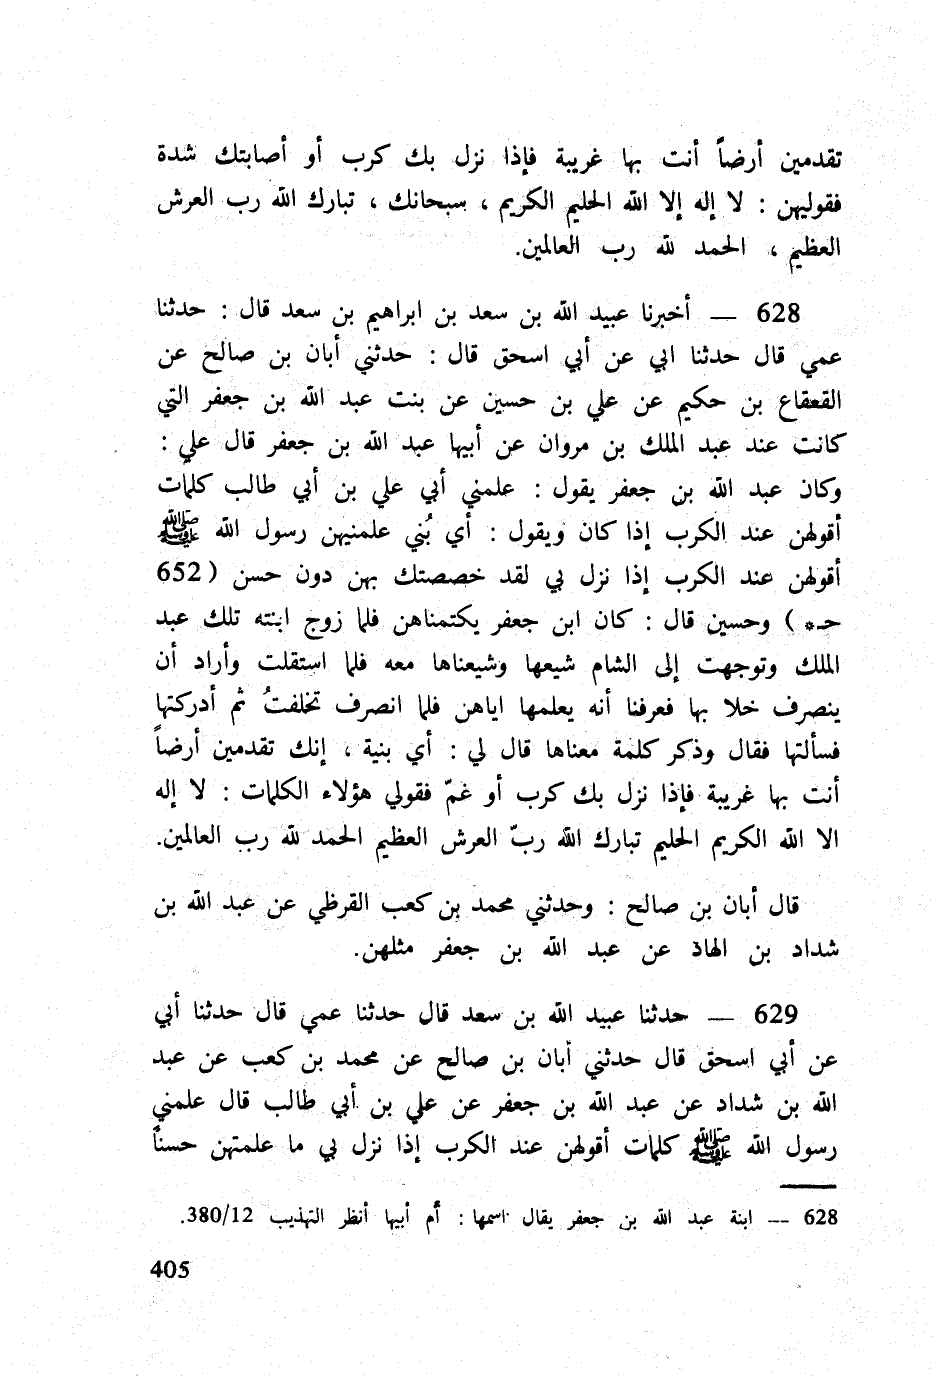 تقدمين أرضاً أنت بها غريبة فإذا نزل بك كرب أو أصابتك شدة
فقوليهن : لا إله إلا الله الحليم الكريم ، سبحانك ، تبارك الله رب العرش
العظيم ، الحمد لله رب العالمين.
628 — أخبرنا عبيد الله بن سعد بن ابراهيم بن سعد قال : حدثنا
عمي قال حدثنا ابي عن أبي اسحق قال : حدثني أبان بن صالح عن
القعقاع بن حكيم عن علي بن حسين عن بنت عبد الله بن جعفر التي
كانت عند عبد الملك بن مروان عن أبيها عبد الله بن جعفر قال علي :
وكان عبد الله بن جعفر يقول : علمني أبي علي بن أبي طالب كلمات
أقولهن عند الكرب إذا كان ويقول : أي بُني علمنيهن رسول الله ﷺ
أقولهن عند الكرب إذا نزل بي لقد خصصتك بهن دون حسن ( 652
حـ* ) وحسين قال : كان ابن جعفر يكتمناهن فلما زوج ابنته تلك عبد
الملك وتوجهت إلى الشام شيعها وشيعناها معه فلما استقلت وأراد أن
ينصرف خلا بها فعرفنا أنه يعلمها اياهن فلما انصرف تخلفتُ ثم أدركتها
فسألتها فقال وذكر كلمة معناها قال لي : أي بنية ، إنك تقدمين أرضاً
أنت بها غريبة فإذا نزل بك كرب أو غمّ فقولي هؤلاء الكلمات : لا إله
الا الله الكريم الحليم تبارك الله ربّ العرش العظيم الحمد لله رب العالمين.
قال أبان بن صالح : وحدثني محمد بن كعب القرظي عن عبد الله بن
شداد بن الهاد عن عبد الله بن جعفر مثلهن.
629 — حدثنا عبيد الله بن سعد قال حدثنا عمي قال حدثنا أبي
عن أبي اسحق قال حدثني أبان بن صالح عن محمد بن كعب عن عبد
الله بن شداد عن عبد الله بن جعفر عن علي بن أبي طالب قال علمني
رسول الله ﷺ كلمات أقولهن عند الكرب إذا نزل بي ما علمتهن حسناً
628 — ابنة عبد الله بن جعفر يقال اسمها : أم أبيها أنظر التهذيب 380/12.
405